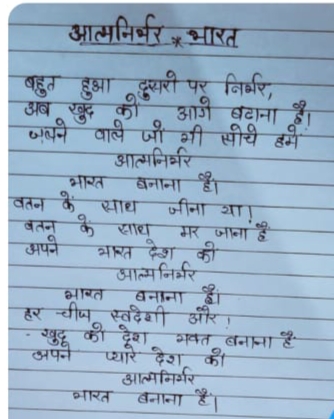 आत्मनिर्भर * भारत
बहुत हुआ दुसरो पर निर्भर,
अब खुद को आगे बढाना है।
जलने वाले जो भी सोचे हमे
आत्मनिर्भर
भारत बनाना है।
वतन के साथ जीना या!
वतन के साथ मर जाना है
अपने भारत देश को
आत्मनिर्भर
भारत बनाना है।
हर चीज स्वदेशी और!
खुद को देश भक्त बनाना है
अपने प्यारे देश को
आत्मनिर्भर
भारत बनाना है।